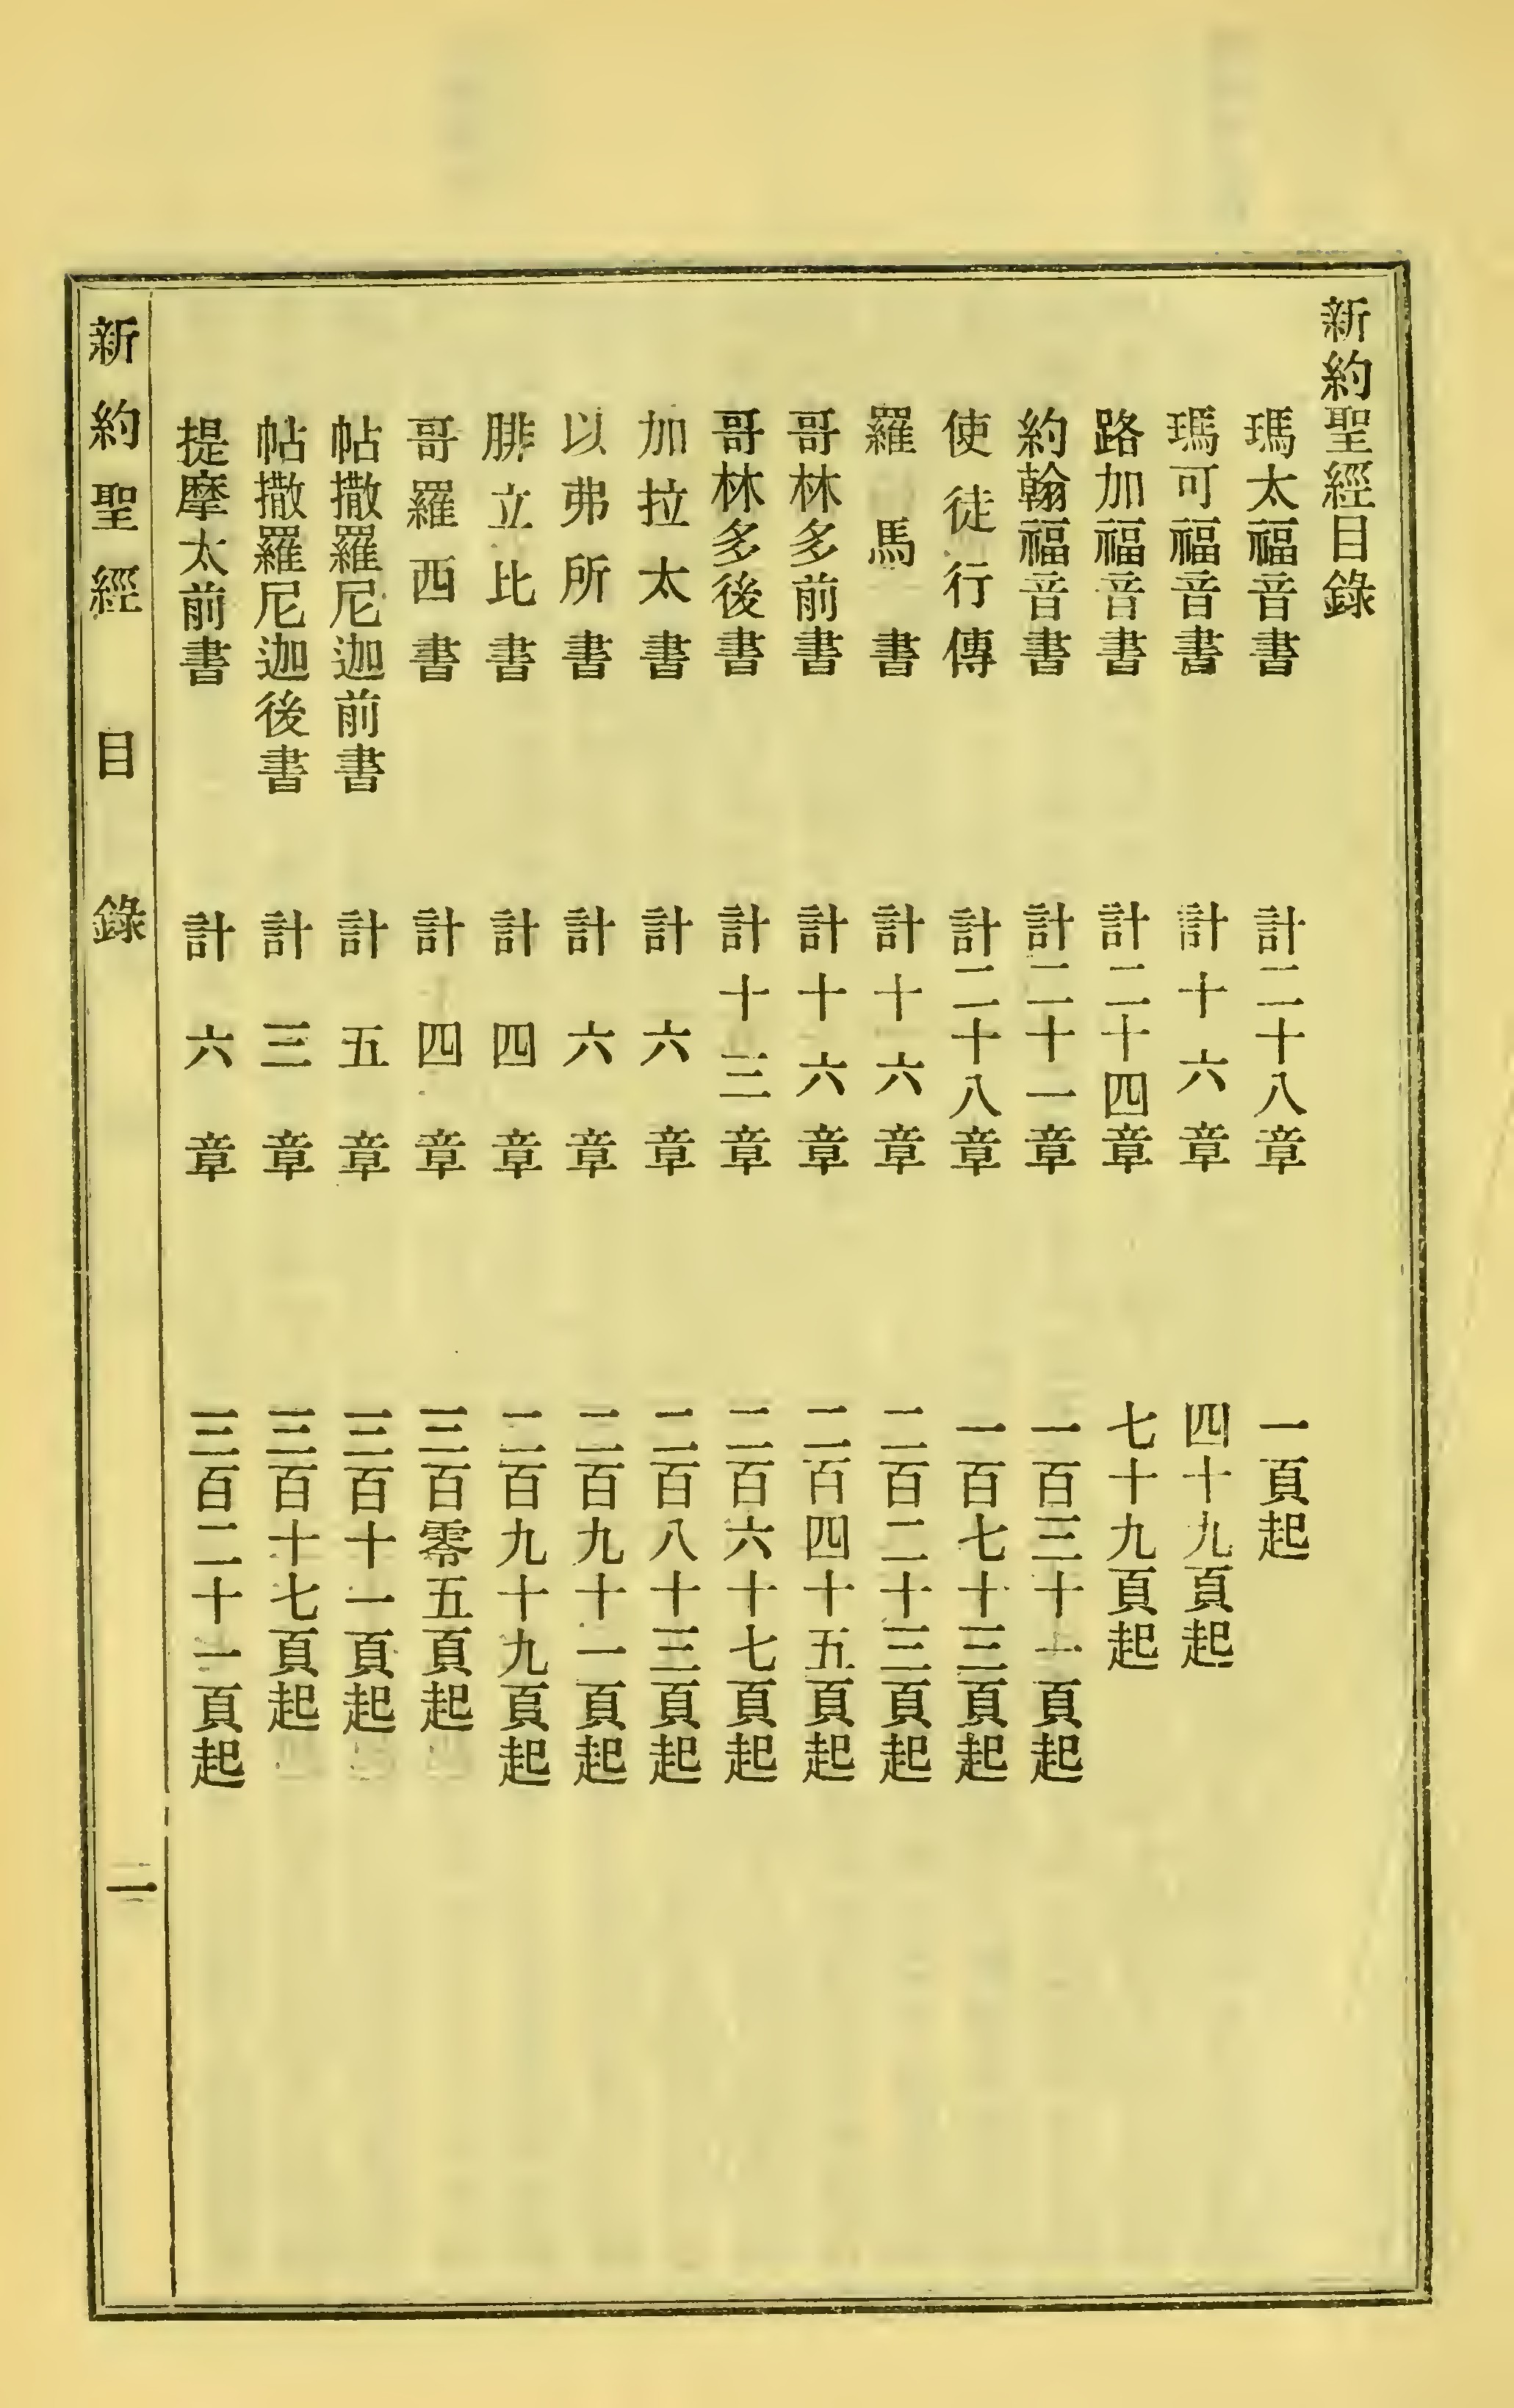 新約聖經目錄
瑪太福音書 計二十八章 一頁起
瑪可福音書 計十六章 四十九頁起
路加福音書 計二十四章 七十九頁起
約翰福音書 計二十一章 一百三十一頁起
使徒行傳 計二十八章 一百七十三頁起
羅馬書 計十六章 二百二十三頁起
哥林多前書 計十六章 二百四十五頁起
哥林多後書 計十三章 二百六十七頁起
加拉太書 計六章 二百八十三頁起
以弗所書 計六章 二百九十一頁起
腓立比書 計四章 二百九十九頁起
哥羅西書 計四章 三百零五頁起
帖撒羅尼迦前書 計五章 三百十一頁起
帖撒羅尼迦後書 計三章 三百十七頁起
提摩太前書 計六章 三百二十一頁起
新約聖經 目錄 一